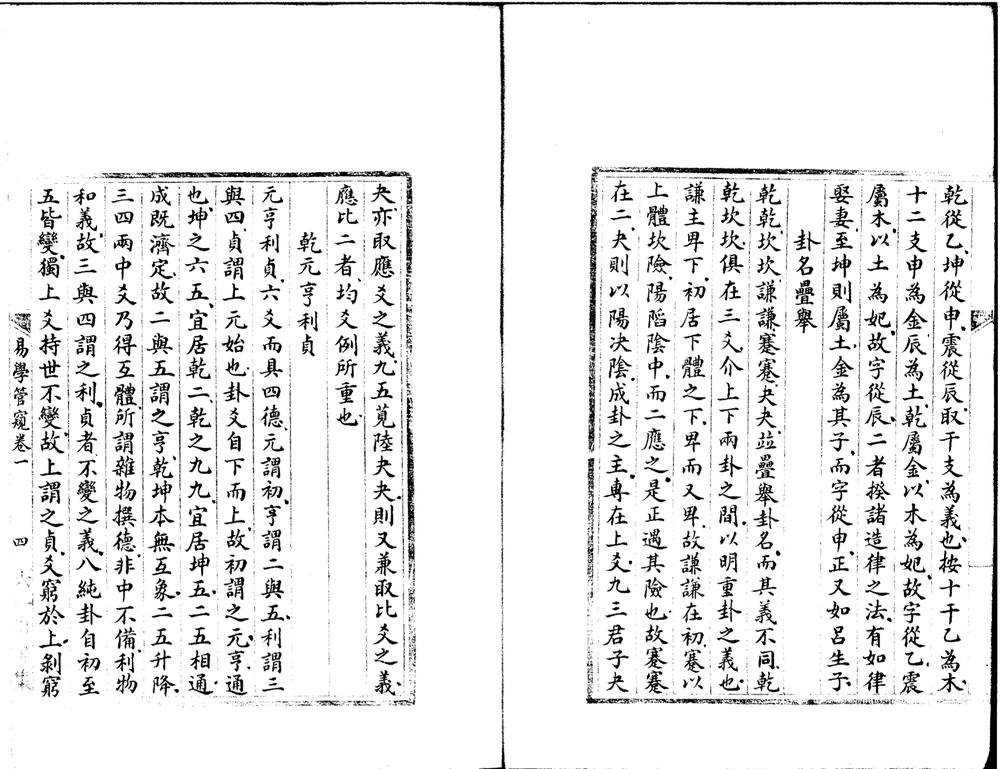 乾從乙坤從申震從辰取干支為義也按十干乙為木
十二支申為金辰為土乾屬金以木為妃故字從乙震
屬木以土為妃故字從辰二者揆諸造律之法有如律
娶妻至坤則屬土金為其子而字從申正又如呂生子
卦名疊舉
乾乾坎坎謙謙蹇蹇夬夬竝疊舉卦名而其義不同乾
乾坎坎俱在三爻介上下兩卦之間以明重卦之義也
謙主卑下初居下體之下卑而又卑故謙謙在初蹇以
上體坎險陽陷陰中而二應之是正遇其險也故蹇蹇
在二夬則以陽決陰成卦之主專在上爻九三君子夬
夬亦取應爻之義九五莧陸夬夬則又兼取比爻之義
應比二者均爻例所重也
乾元亨利貞
元亨利貞六爻而具四德元謂初亨謂二與五利謂三
與四貞謂上元始也卦爻自下而上故初謂之元亨通
也坤之六五宜居乾二乾之九九宜居坤五二五相通
成既濟定故二與五謂之亨乾坤本無互象二五升降
三四兩中爻乃得互體所謂雜物撰德非中不備利物
和義故三與四謂之利貞者不變之義八純卦自初至
五皆變獨上爻持世不變故上謂之貞爻窮於上剝窮
易學管窺卷一
四